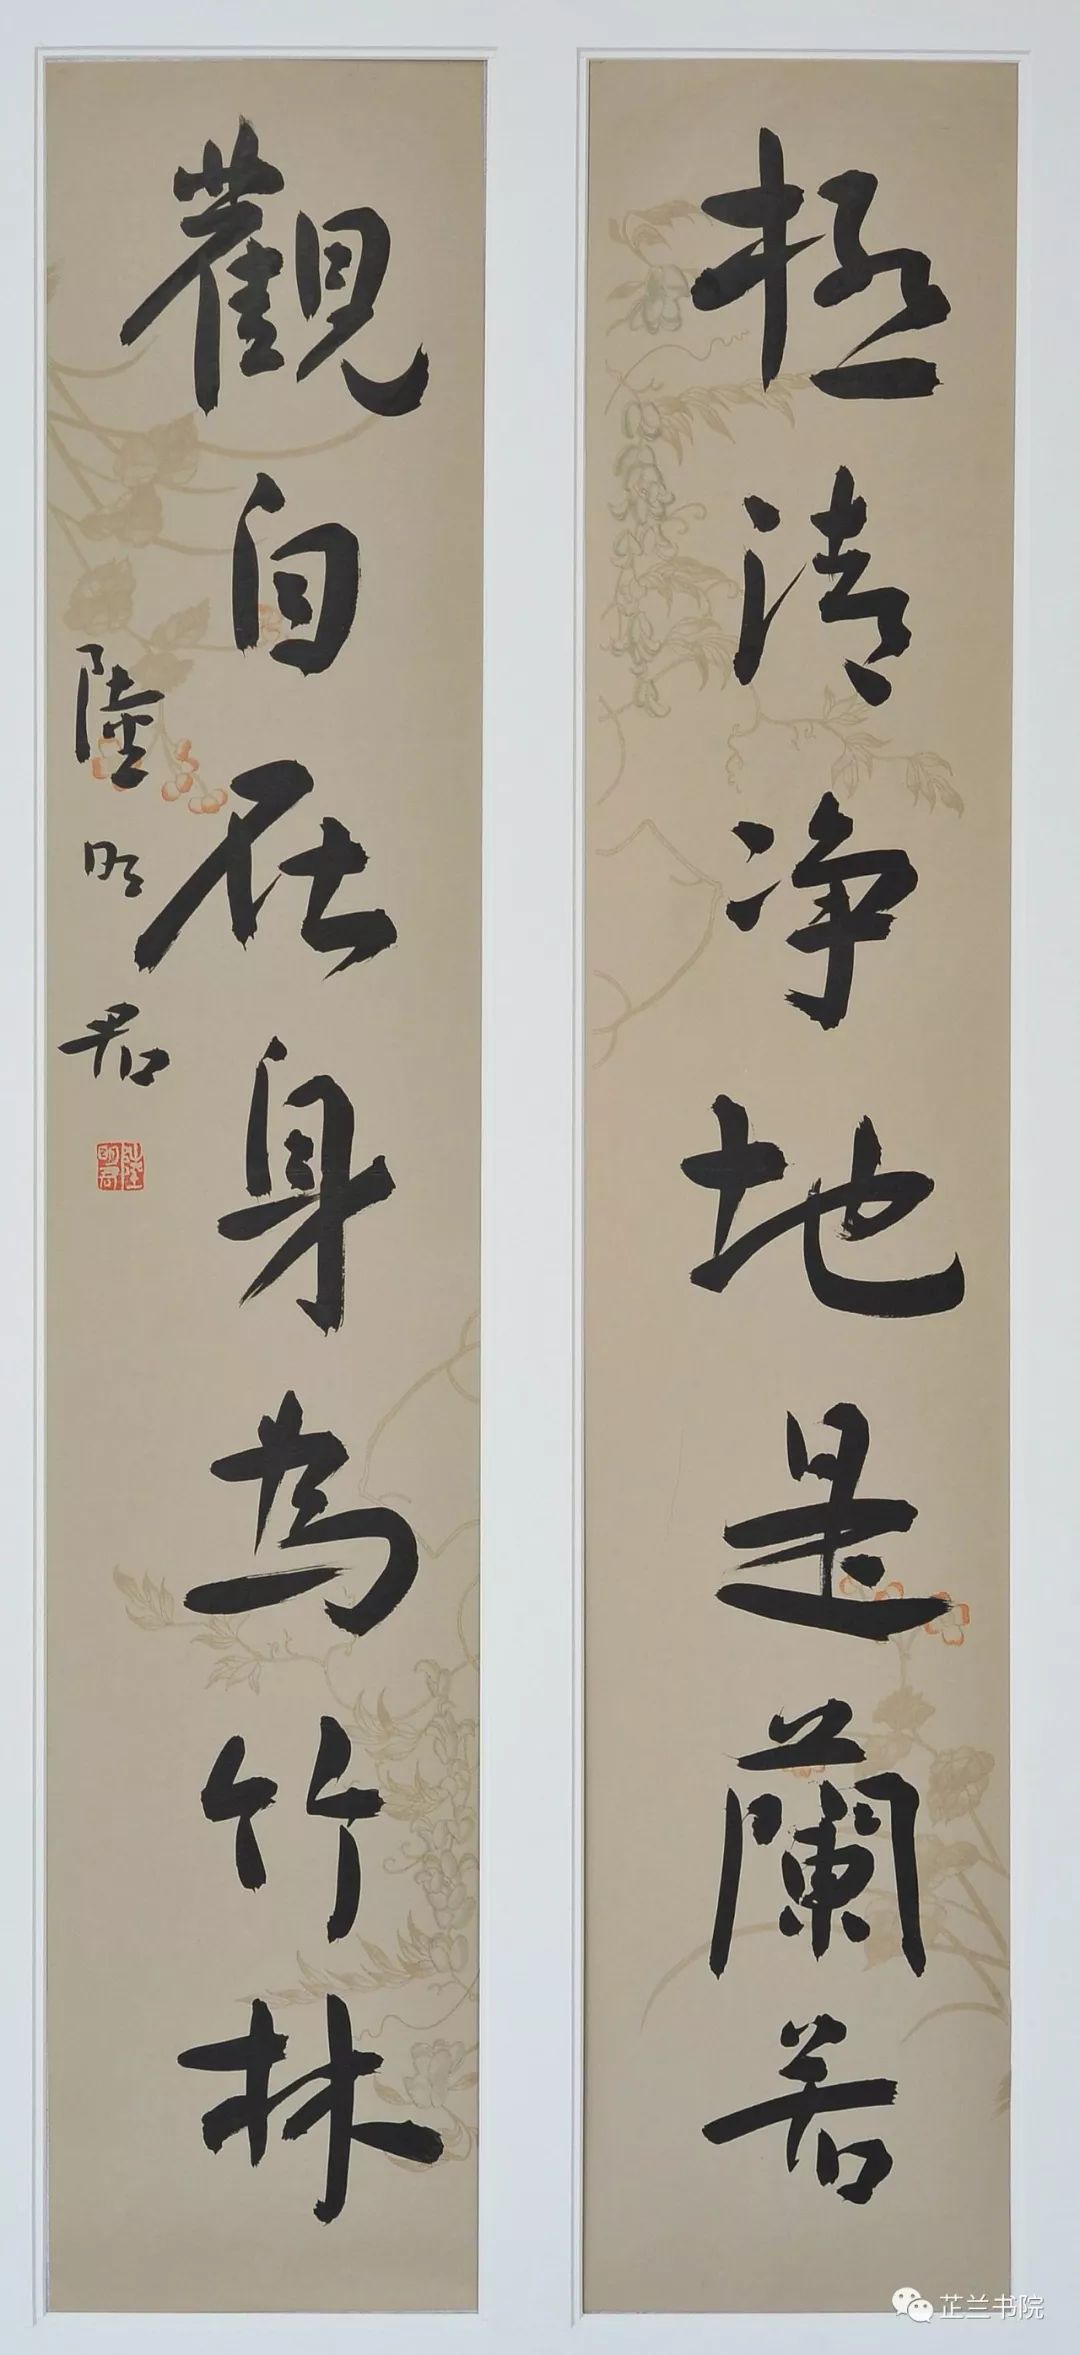 極清净地是蘭若
觀自在身為竹林
陸明君
陸明君
芷兰书院